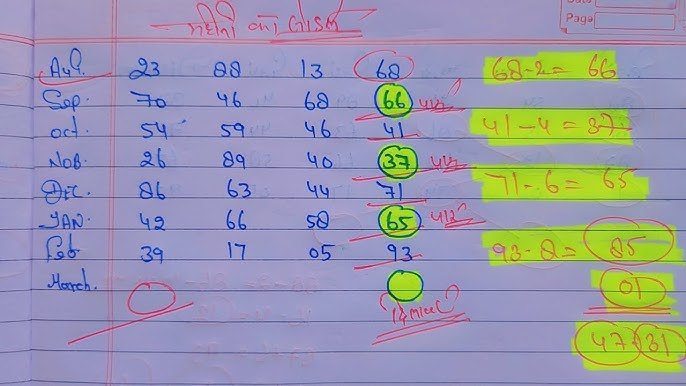 Date
Page
महीनो का GOLDEN
Aug. 23 88 13 68 68-2= 66
Sep. 70 46 68 66
oct. 54 59 46 41 41-4=37
Nob. 26 89 40 37
Dec. 86 63 44 71 71-6= 65
JAN. 42 66 58 65
Feb 39 17 05 93 93-8= 85
March. 01
47 31